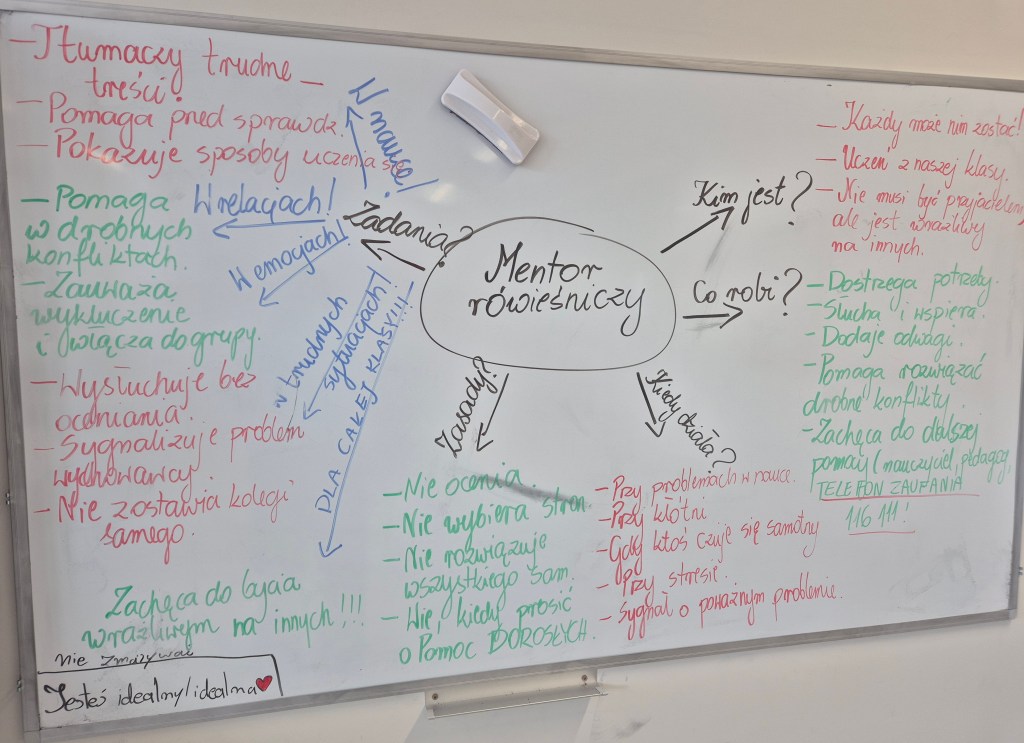 - Tłumaczy trudne -
treści.
- Pomaga przed sprawdz.
- Pokazuje sposoby uczenia się
W nauce!
W relacjach!
- Pomaga
w drobnych
konfliktach.
- Zauważa
wykluczenie
i włącza do grupy.
W emocjach!
- Wysłuchuje bez
oceniania.
- Sygnalizuje problem
wychowawcy.
- Nie zostawia kolegi
samego.
w trudnych
sytuacjach!
DLA CAŁEJ KLASY!!!
Zachęca do bycia
wrażliwym na innych!!!
nie zmazywać
Jesteś idealny/idealna
Zadania?
Mentor
rówieśniczy
Kim jest?
- Każdy może nim zostać!
- Uczeń z naszej klasy.
- Nie musi być przyjacielem,
ale jest wrażliwy
na innych.
Co robi?
- Dostrzega potrzeby.
- Słucha i wspiera.
- Dodaje odwagi.
- Pomaga rozwiązać
drobne konflikty.
- Zachęca do dalszej
pomocy (nauczyciel, pedagog,
TELEFON ZAUFANIA
116 111!
Zasady?
- Nie ocenia.
- Nie wybiera stron.
- Nie rozwiązuje
wszystkiego sam.
- Wie, kiedy prosić
o Pomoc DOROSŁYCH.
Kiedy działa?
- Przy problemach w nauce.
- Przy kłótni
- Gdy ktoś czuje się samotny
- Przy stresie.
- Sygnał o poważnym problemie.